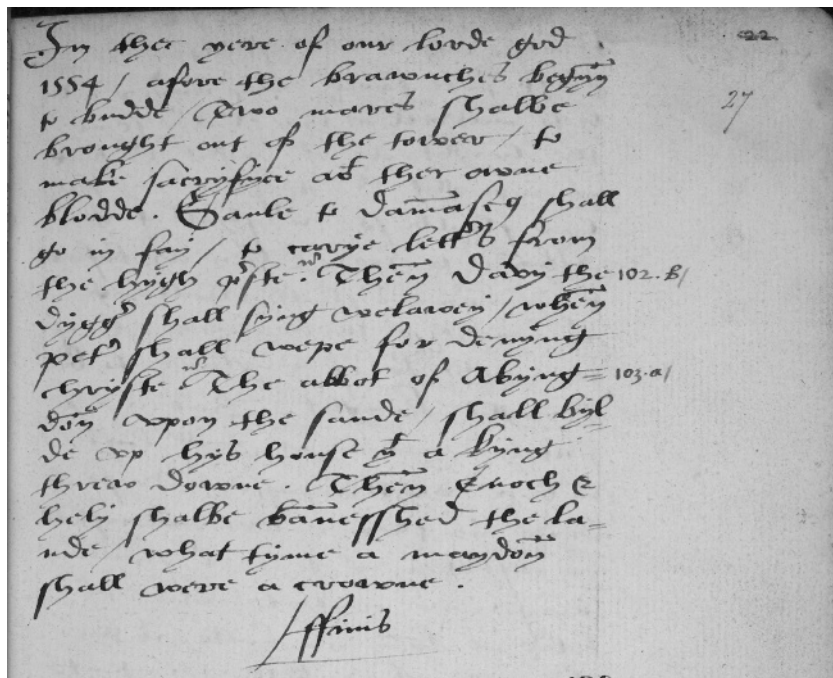 In ther yere of our lorde god
22
1554 / afore the brawnches begyn
27
to budde / Two mares shalbe
brought out of the tower / to
make sacryfyce at ther owne
blodde. Saule to damaseq shall
go in fay / to carye letters from
the hygh prste. Then davy the 102.b/
dygger shall syng welawey / when
peter shall wepe for denyng
chryste The abbot of Abyng= 103.a/
don vpon the sande / shall byl=
de vp hys house yt a kyng
threw downe. Then Enoch &
hely shalbe banesshed the la=
nde / what tyme a maydon
shall were a crowne.
ffinis